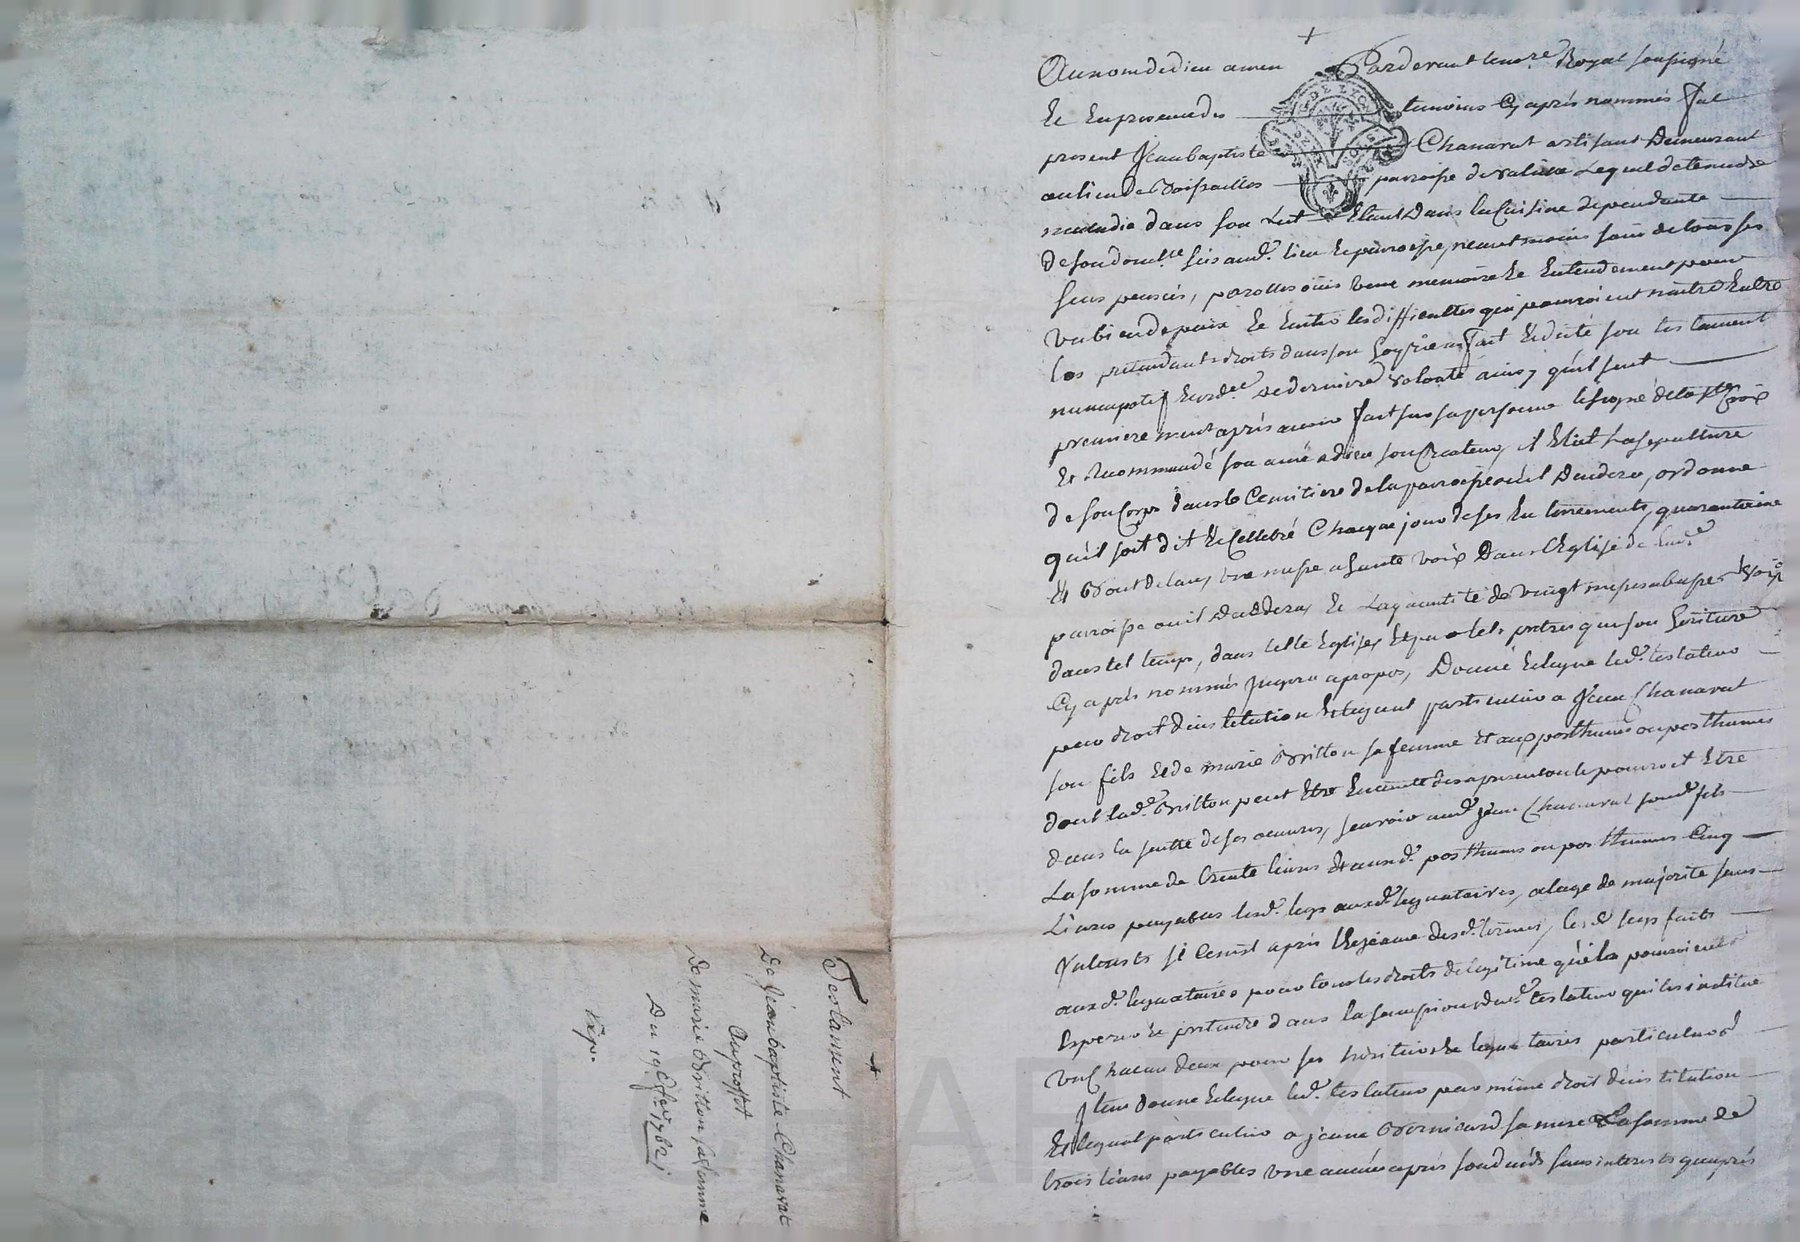 Au nom de dieu amen Pardevant le no.re Royal soussigné
Et En presence des temoins Cy aprés nommés fut
present Jean baptiste Chanavat artisant Demeurant
au lieu de paroisse de valura Lequel detenu de
maladie dans son Lict Etant Dans la Cuisine dependante
de son domlle sis aud. lieu Et paroisse, neantmoins sain de tous ses
sens pensées, parolles ouis veue memoire Et Entendement pour
un bien de paix Et Eviter les difficultes qui pouroient naitre Entre
les pretendants droits dans son hoyrie a fait Et dicté son testament
nuncupatif Et ord.e de derniere volonté ainsy qu'il suit
premierement aprés avoir fait sur sa personne le signe de la ste Croix
Et Recommandé son ame a dieu son Createur, il Elict La sepulture
de son Corps dans le Cemitiere de la paroisse où il Decedera, ordonne
qu'il soit dit Et Cellebré Chaque jour de ses Enterrements, quarantaine
Et bout de lan, une messe a haute voix Dans l'Eglise de lad.e
paroisse ou il Decedera, Et La quantité de vingt messes a basse voix
dans tel temps, dans telle Eglise, Et par tels pretres que son heritiere
Cy aprés nommée jugera apropos, Donne Et legue led. testateur
par droit d'institution Et legat particulier a Jean Chanavat
son fils Et de marie Britton sa femme Et aux posthumes ou posthumes
dont lad.e Britton peut Etre Enceinte des apresent ou le pourroit Etre
dans la suitte de ses oeuvres, scavoir aud. jean Chanavat sond. fils
La somme de trente livres Et aux d. posthumes ou posthumes Cinq
Livres payables lesd. legs auxd. legataires, a lage de majorité sans
Interests si Cenest aprés les d. legs faits
auxd. legataires pour tous les droits de legitime qu'ils pouroient
Esperer Et pretendre dans la succession dud. testateur qui les institue
un chacun deux pour ses heritiers Et legataires particuliers
Item donne Et legue led. testateur par même droit d'institution
Et legat particulier a jeanne sa mere La somme de
trois livres payables une année aprés son decés sans interests qu'aprés
Testament
De Jean baptiste Chanavat
Auproffit
De marie Britton sa femme
Du 19e
Exp.